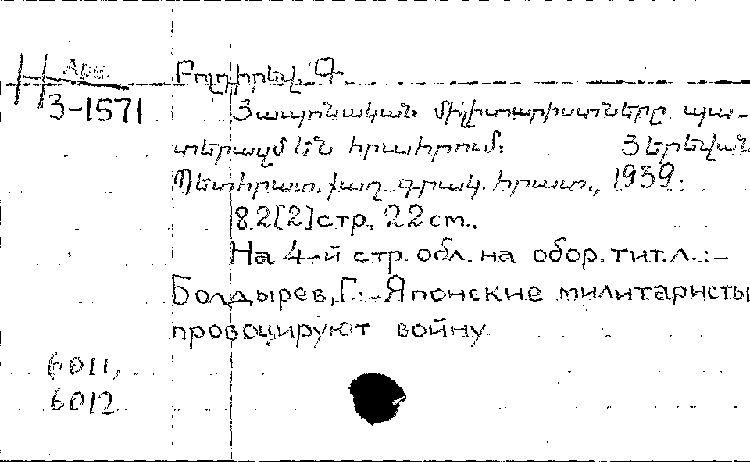 Арм.
3-1571
Բոլդիրեվ, Գ.
Յապոնական միլիտարիստները պա-
տերազմ են հրահրում: Յերեվան
Պետհրատ. քաղ. գրակ. հրատ., 1939:
82[2]стр. 22 см.
На 4-й стр. обл. на обор. тит. л.:-
Болдырев, Г.:-Японские милитаристы
провоцируют войну.
6011,
6012